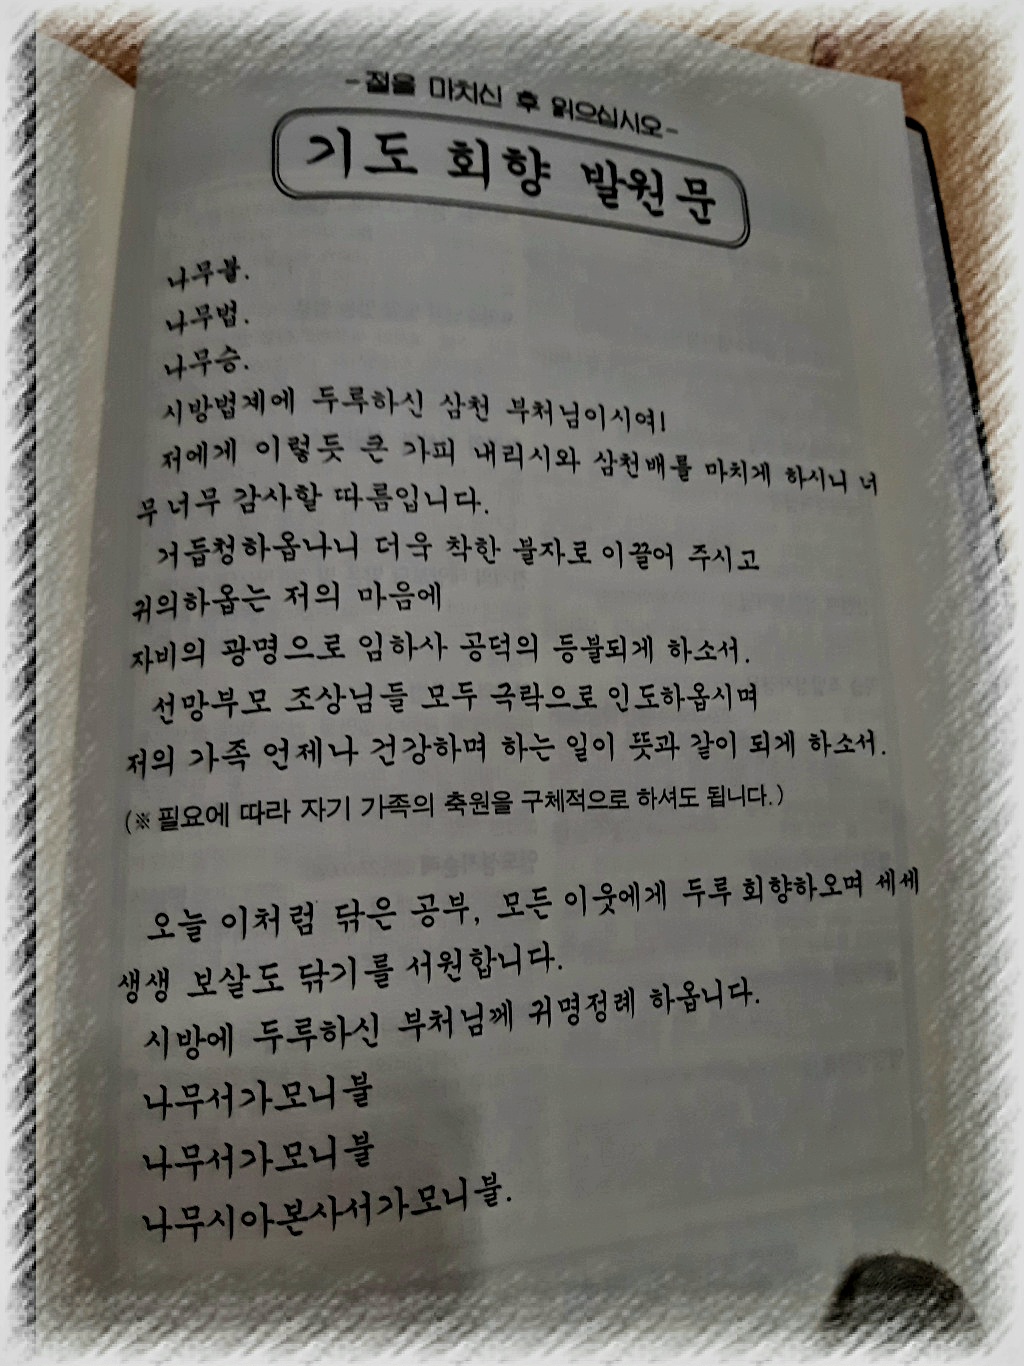 -절을 마치신 후 읽으십시오-
기도 회향 발원문
나무불.
나무법.
나무승.
시방법계에 두루하신 삼천 부처님이시여!
저에게 이렇듯 큰 가피 내리시와 삼천배를 마치게 하시니 너
무너무 감사할 따름입니다.
거듭청하옵나니 더욱 착한 불자로 이끌어 주시고
귀의하옵는 저의 마음에
자비의 광명으로 임하사 공덕의 등불되게 하소서.
선망부모 조상님들 모두 극락으로 인도하옵시며
저의 가족 언제나 건강하며 하는 일이 뜻과 같이 되게 하소서.
(※ 필요에 따라 자기 가족의 축원을 구체적으로 하셔도 됩니다.)
오늘 이처럼 닦은 공부, 모든 이웃에게 두루 회향하오며 세세
생생 보살도 닦기를 서원합니다.
시방에 두루하신 부처님께 귀명정례 하옵니다.
나무서가모니불
나무서가모니불
나무시아본사서가모니불.